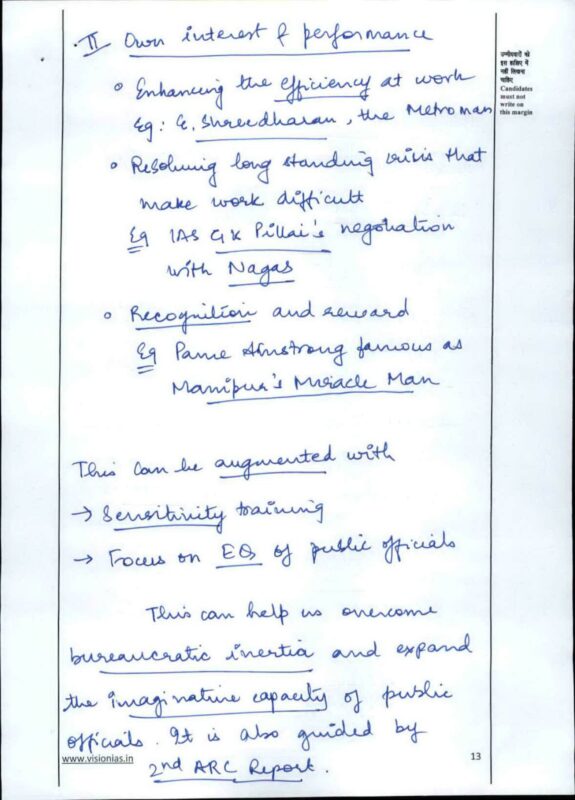 II Own interest & performance
° Enhancing the efficiency at work
Eg: E. Shreedharan, the Metroman
° Resolving long standing crisis that
make work difficult
Eg IAS GK Pillai's negotiation
with Nagas
° Recognition and reward
Eg Pame Armstrong famous as
Manipur's Miracle Man
This can be augmented with
→ Sensitivity training
→ Focus on EQ of public officials
This can help us overcome
bureaucratic inertia and expand
the imaginative capacity of public
officials. It is also guided by
2nd ARC Report.
www.visionias.in
13
उम्मीदवारों को
इस हाशिए में
नहीं लिखना
चाहिए
Candidates
must not
write on
this margin